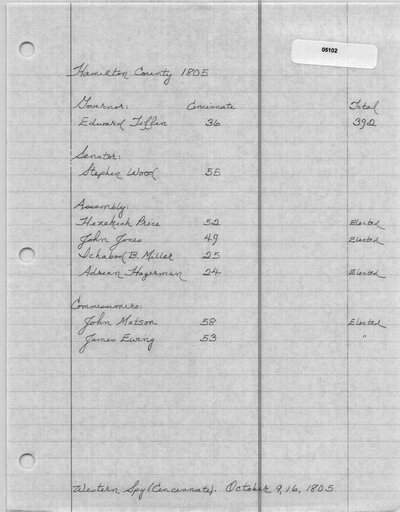 05102
Hamilton County 1805
Governor: Cincinnati Total
Edward Tiffin 36 392
Senator:
Stephen Wood 55
Assembly:
Hezekiah Price 52 Elected
John Jones 49 Elected
Ichabod B. Miller 25
Adrian Hagerman 24 Elected
Commissioners:
John Matson 58 Elected
James Ewing 53 "
Western Spy (Cincinnati). October 9, 16, 1805